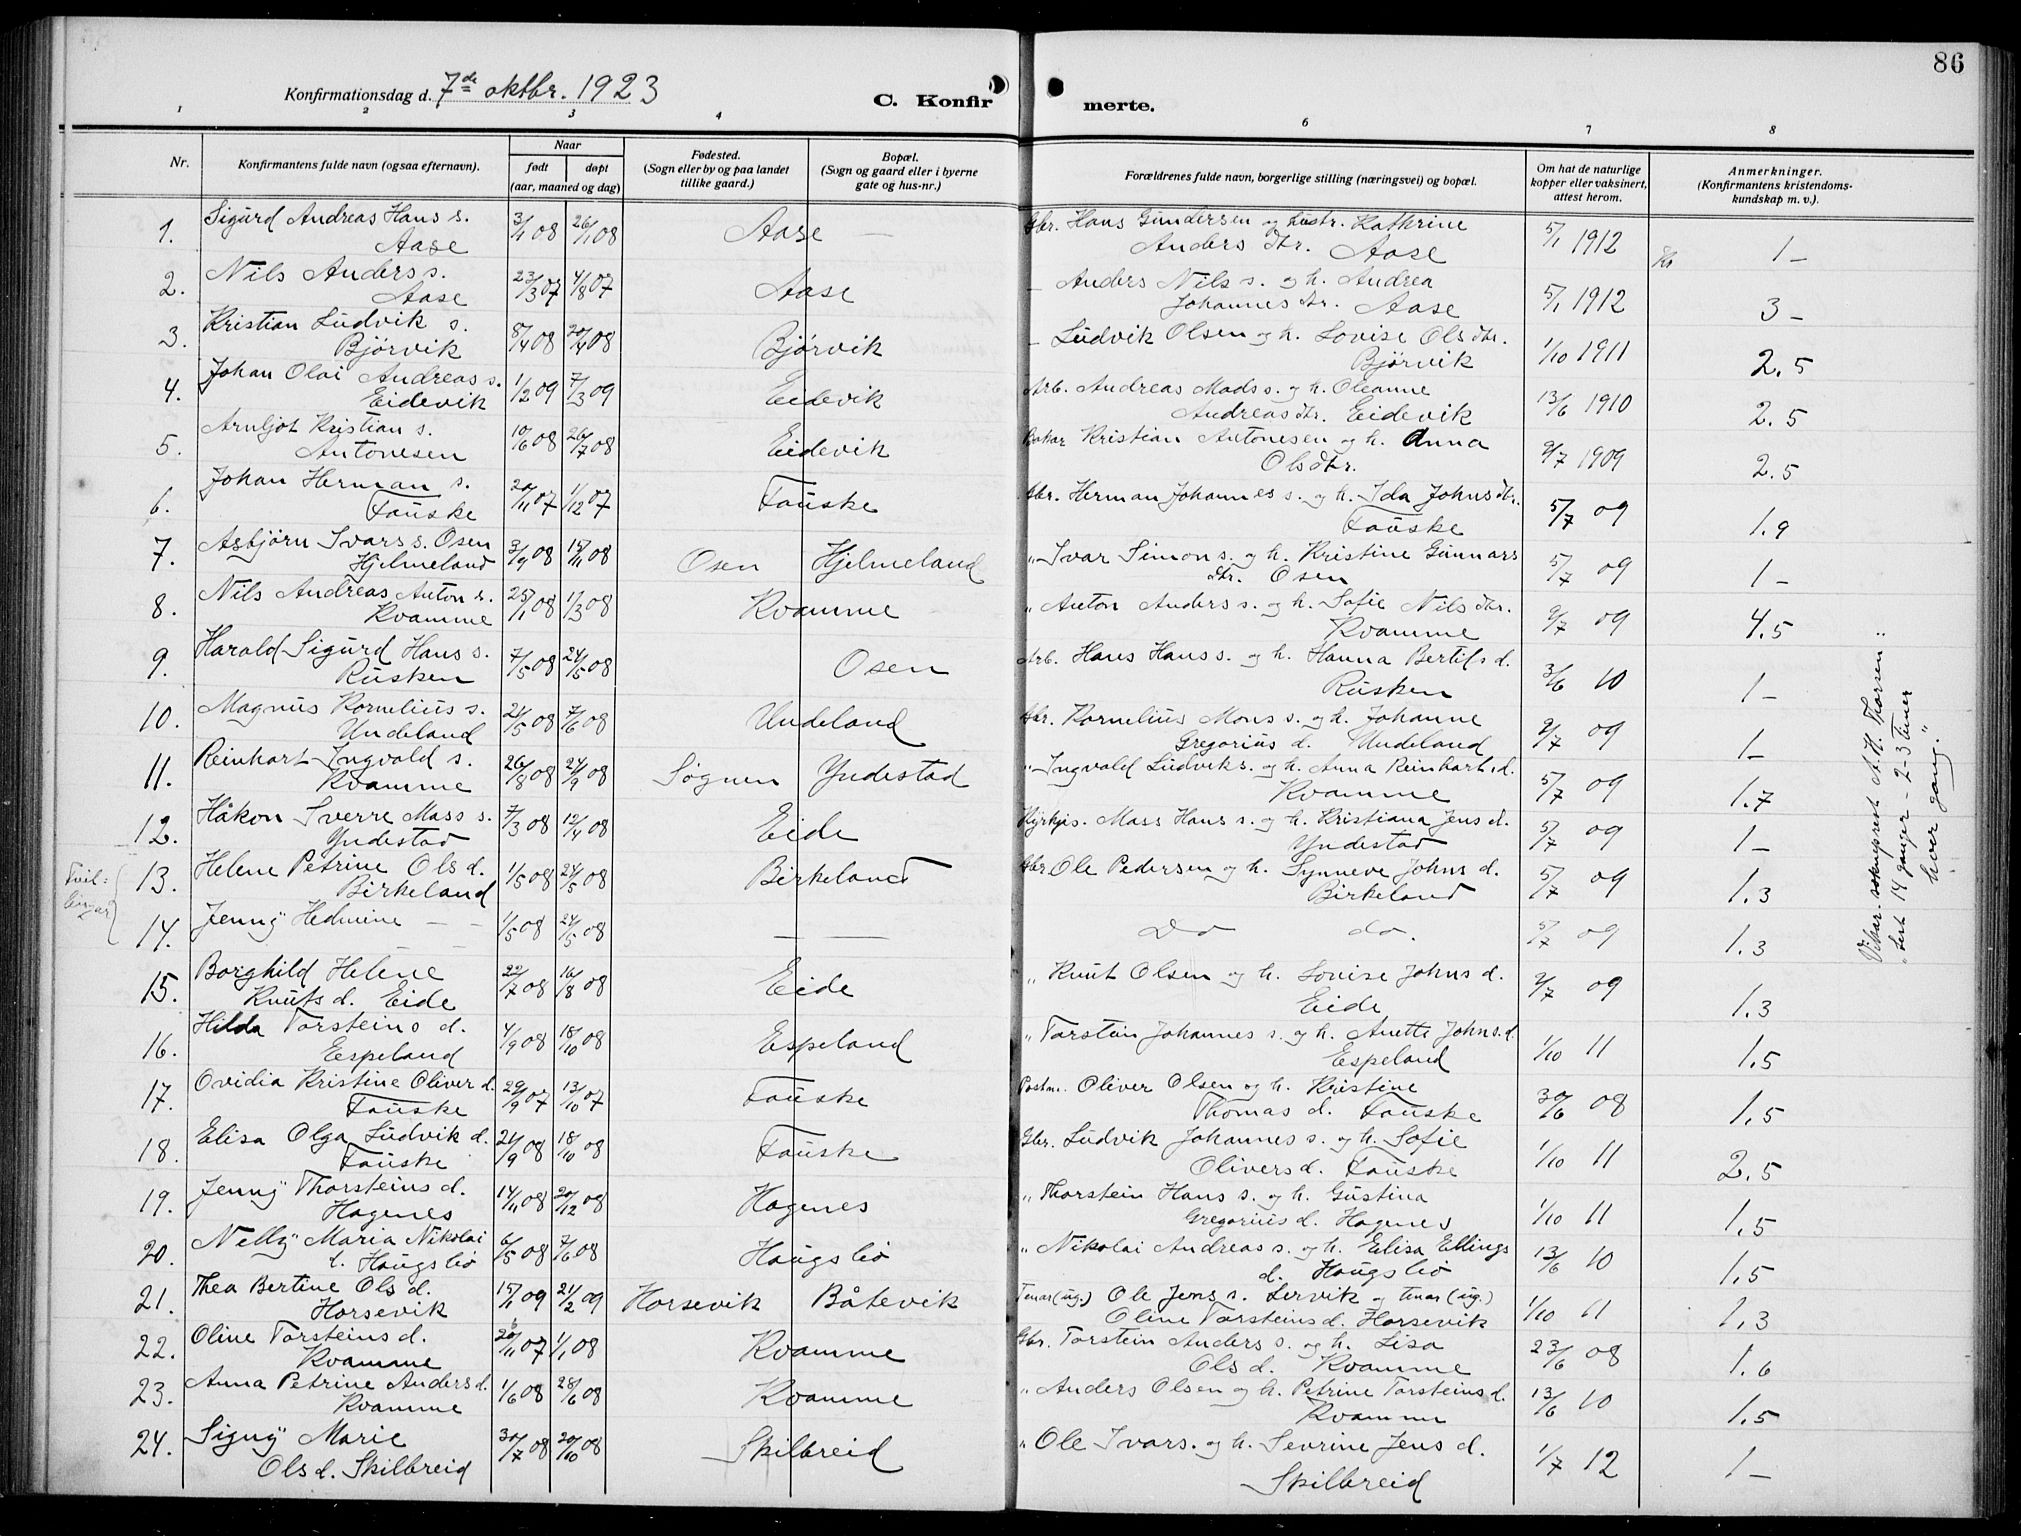 86
Konfirmationsdag d. 7de oktbr. 1923
C. Konfirmerte.
1 2 3 4 6 7 8
Nr.
Konfirmantens fulde navn (ogsaa efternavn).
Naar
født
døpt
(aar, maaned og dag)
Fødested.
(Sogn eller by og paa landet
tillike gaard.)
Bopæl.
(Sogn og gaard eller i byerne
gate og hus-nr.)
Forældrenes fulde navn, borgerlige stilling (næringsvei) og bopæl.
Om hat de naturlige
kopper eller vaksinert,
attest herom.
Anmerkninger.
(Konfirmantens kristendoms-
kundskap m. v.).
1. Sigurd Andreas Hans s. 3/1 08 26/1 08 Aase — Gbr. Hans Gundersen og hustr. Kathrine 5/1 1912 1 –
Aase Anders dtr. Aase
2. Nils Anders s. 23/3 07 4/8 07 Aase – Anders Nils s. og h. Andrea 5/1 1912 3 –
Aase Johannes dtr. Aase
3. Kristian Ludvik s. 8/4 08 20/4 08 Bjørvik – Ludvik Olsen og h. Lovise Ols dtr. 1/10 1911 2.5
Bjørvik Bjørvik
4. Johan Olai Andreas s. 1/2 09 7/3 09 Eidevik Arb. Andreas Mads s. og h. Oleanne 13/6 1910 2.5
Eidevik Andreas dtr. Eidevik
5. Arnljot Kristian s. 10/6 08 26/7 08 Eidevik Bakar Kristian Antonesen og h. Anna 9/7 1909 2.5
Antonesen Olsdtr.
6. Johan Herman s. 20/11 07 1/12 07 Fauske Gbr. Herman Johannes s. og h. Ida Johns dtr. 5/7 09 1.9
Fauske Fauske
7. Asbjørn Ivars s. Osen 3/9 08 15/11 08 Osen Hjelmeland " Ivar Simon s. og h. Kristine Gunnars 5/7 09 1 –
Hjelmeland dtr. Osen
8. Nils Andreas Anton s. 25/1 08 1/3 08 Kvamme " Anton Anders s. og h. Sofie Nils dtr. 9/7 09 4.5
Kvamme Kvamme
9. Harald Sigurd Hans s. 7/5 08 24/5 08 Osen Arb. Hans Hans s. og h. Hanna Bertils d. 3/6 10 1 –
Rusken Rusken
10. Magnus Kornelius s. 21/5 08 7/6 08 Undeland Gbr. Kornelius Mons s. og h. Johanne 9/7 09 1 –
Undeland Gregorius d. Undeland
11. Reinhart Ingvald s. 26/8 08 24/9 08 Søgnen Yndestad " Ingvald Ludviks. og h. Anna Reinharts d. 5/7 09 1.7
Kvamme Kvamme
12. Håkon Sverre Mass s. 7/3 08 12/4 08 Eide Kyrkjs. Mass Hans s. og h. Kristiana Jens d. 5/7 09 1 –
Yndestad Yndestad
Tvil-
lingar
13. Helene Petrine Ols d. 1/5 08 24/5 08 Birkeland Gbr. Ole Pedersen og h. Synneve Johns d. 5/7 09 1.3
Birkeland Birkeland
14. Jenny Hedvine – – 1/5 08 24/5 08 — — Do do. 5/7 09 1.3
15. Borghild Helene 22/7 08 16/8 08 Eide " Knut Olsen og h. Lovise Johns d. 9/7 09 1.3
Knuts d. Eide Eide
16. Hilda Torsteins d. 4/9 08 18/10 08 Espeland " Torstein Johannes s. og h. Anette Johns. d. 1/10 11 1.5
Espeland Espeland
17. Ovidia Kristine Oliver d. 29/9 07 13/10 07 Fauske Postm. Oliver Olsen og h. Kristine 30/6 08 1.5
Fauske Thomas d. Fauske
18. Elisa Olga Ludvik d. 21/9 08 18/10 08 Fauske Gbr. Ludvik Johannes s. og h. Sofie 1/10 11 2.5
Fauske Olivers d. Fauske
19. Jenny Thorsteins d. 14/11 08 20/12 08 Hagenes " Thorstein Hans s. og h. Gustina 1/10 11 1.5
Hagenes Gregorius d. Hagenes
20. Nelly Maria Nikolai 6/5 08 7/6 08 Haugslio " Nikolai Andreas s. og h. Elisa Ellings 13/6 10 1.5
d. Haugslio d. Haugslio
21. Thea Bertine Ols d. 15/1 09 21/2 09 Horsevik Båtevik Tenar (ug.) Ole Jens s. Lervik og tenar (ug.) 1/10 11 1.3
Horsevik Oline Torsteins d. Horsevik
22. Oline Torsteins d. 20/11 07 1/1 08 Kvamme Gbr. Torstein Anders s. og h. Lisa 23/6 08 1.6
Kvamme Ols d. Kvamme
23. Anna Petrine Anders d. 1/6 08 28/6 08 Kvamme " Anders Olsen og h. Petrine Torsteins d. 13/6 10 1.5
Kvamme Kvamme
24. Signy Marie 30/7 08 20/10 08 Skilbreid " Ole Ivars. og h. Sevrine Jens d. 1/7 12 1 –
Ols d. Skilbreid Skilbreid
Vikar. soknprest A. K. Thorsen
"Lest 14 ganger – 2-3 timer
hver gang."